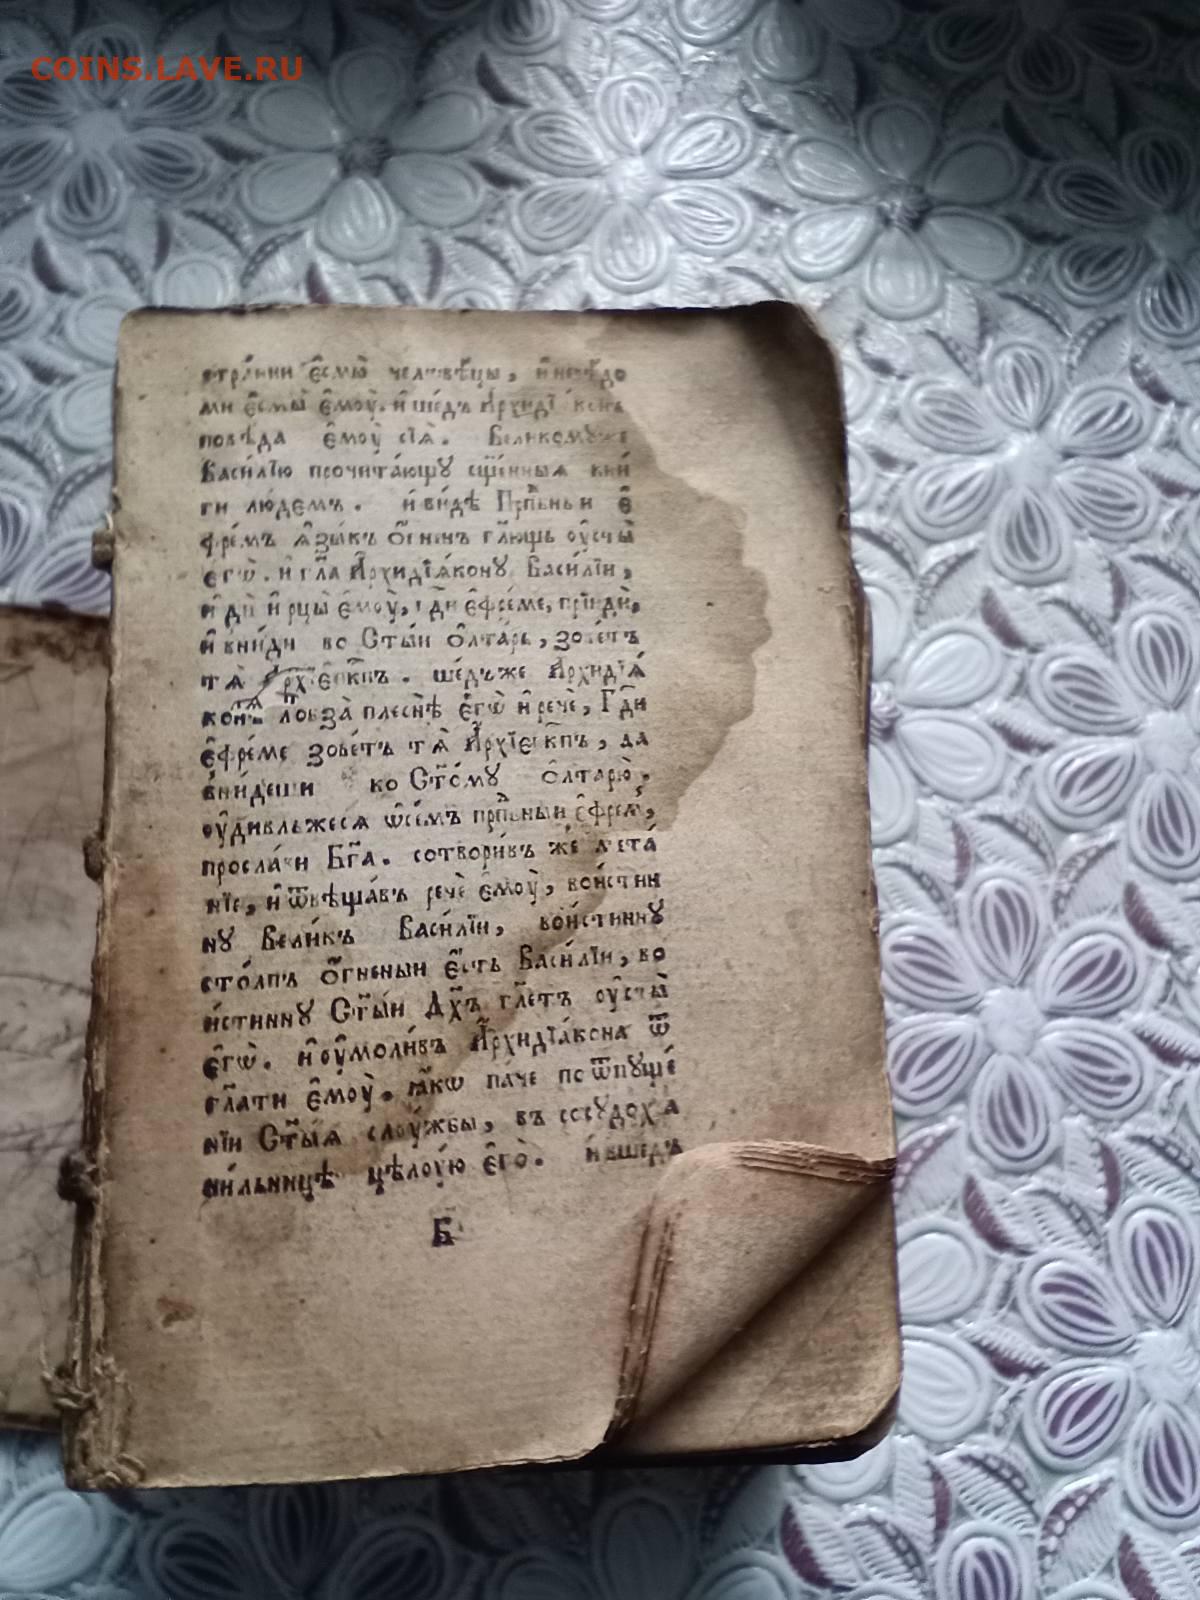 COINS.LAVE.RU
стра́нни є҆смы̀ человѣ́цы, и҆ невѣ́до
ми є҆смы̀ є҆моу̀. и҆ ше́дъ А҆рхидїѧ́конъ
повѣ́да є҆моу̀ сїѧ̀. Вели́комꙋже
Васи́лїю прочита́ющꙋ сщ҃е́нныѧ кни́
ги лю́демъ. и҆ ви́дѣ Прпⷣбныи Е҆
фре́мъ ѧ҆зы́къ о҆́гненъ гл҃ющь оу҆сты̀
є҆гѡ̀. и҆ гл҃а А҆рхидїѧ́конꙋ Васи́лїи,
и҆ди̂ и҆ рцы̀ є҆моу̀, гдⷭ҇и є҆фре́ме, прїиди̂,
и҆ вни́ди во Ст҃ы́и О҆лта́рь, зове́тъ
тѧ̀ А҆рхїе҆пкⷭ҇пъ. ше́дъже А҆рхидїѧ́
конъ лобза̀ плеснѣ̀ є҆гѡ̀ и҆ речѐ, Гдⷭ҇и
є҆фре́ме зове́тъ тѧ̀ А҆рхїе҆пкⷭ҇пъ, да
вни́деши ко Ст҃о́мꙋ О҆лтарю̀,
оу҆диви́льжесѧ ѡ҆ се́мъ прпⷣбныи є҆фре́м,
просла́ви Бг҃а. сотвори́въ же мета́
нїе, и҆ ѿвѣща́въ речѐ є҆моу̀, вои́стин
нꙋ Вели́къ Васи́лїи, вои́стиннꙋ
сто́лпъ о҆́гненыи є҆́сть Васи́лїи, во
и́стиннꙋ Ст҃ы́и Дх҃ъ гл҃етъ оу҆сты̀
є҆гѡ̀. и҆ оу҆моли́въ А҆рхидїа́кона ѿ
гл҃ати є҆моу̀. ꙗ҆́кѡ па́че по ѿпꙋще́
нїи Ст҃ы́ѧ слоу́жбы, въ сосꙋдохра
ни́льницѣ цѣлоу́ю є҆го̀. и҆ вше́дъ
Б